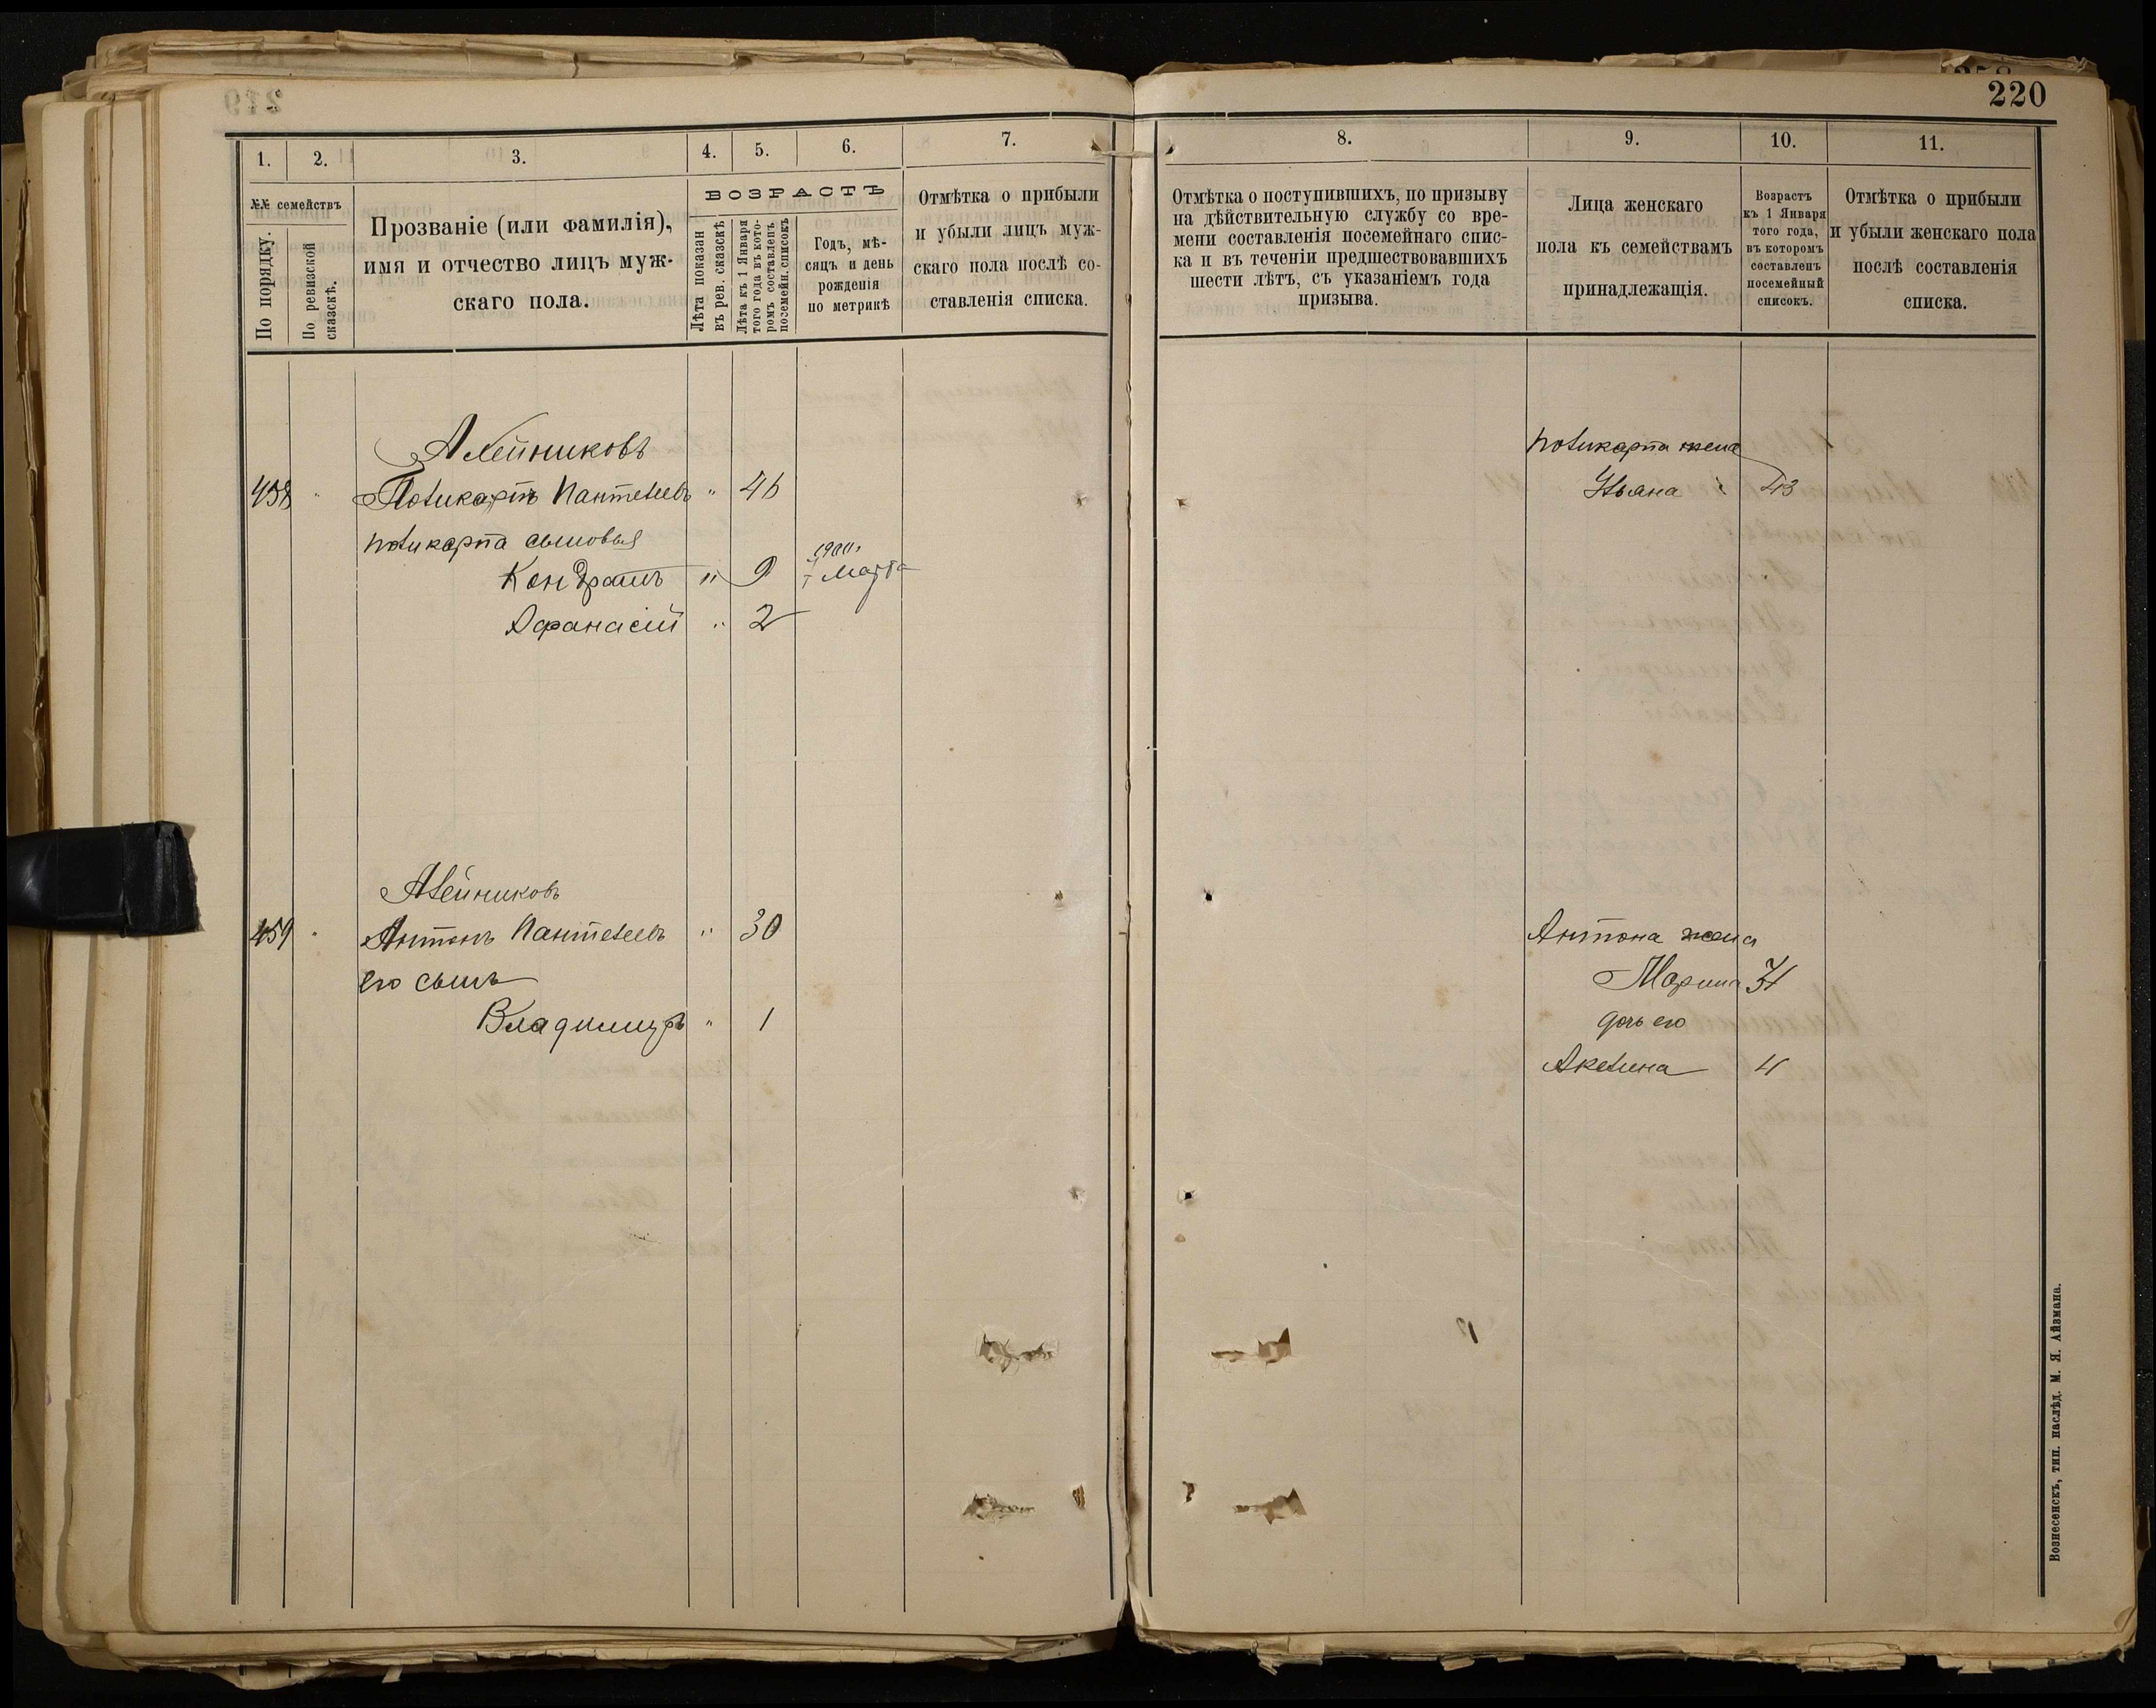 220
1. 2. 3. 4. 5. 6. 7.
№№ семействъ
По порядку.
По ревизской сказскѣ.
Прозваніе (или фамилія),
имя и отчество лицъ муж-
скаго пола.
ВОЗРАСТЪ
Лѣта показан
въ рев. сказскѣ
Лѣта къ 1 Января
того года въ кото-
ромъ составленъ
посемейн. списокъ
Годъ, мѣ-
сяцъ и день
рожденія
по метрикѣ
Отмѣтка о прибыли
и убыли лицъ муж-
скаго пола послѣ со-
ставленія списка.
8. 9. 10. 11.
Отмѣтка о поступившихъ, по призыву
на дѣйствительную службу со вре-
мени составленія посемейнаго спис-
ка и въ теченіи предшествовавшихъ
шести лѣтъ, съ указаніемъ года
призыва.
Лица женскаго
пола къ семействамъ
принадлежащія.
Возрастъ
къ 1 Января
того года,
въ которомъ
составленъ
посемейный
списокъ.
Отмѣтка о прибыли
и убыли женскаго пола
послѣ составленія
списка.
Алейниковъ
458 " Поликарпъ Пантелеевъ " 46
поликарпа сыновья
Кондратъ " 9 Марта
Афанасій " 2
поликарпа жена
Ульяна 43
Алейниковъ
459 " Антонъ Пантелеевъ " 30
его сынъ
Владимиръ " 1
Антона жена
Марина 31
дочь его
Акелина 4
Вознесенскъ, тип. наслѣд. М. Я. Айзмана.